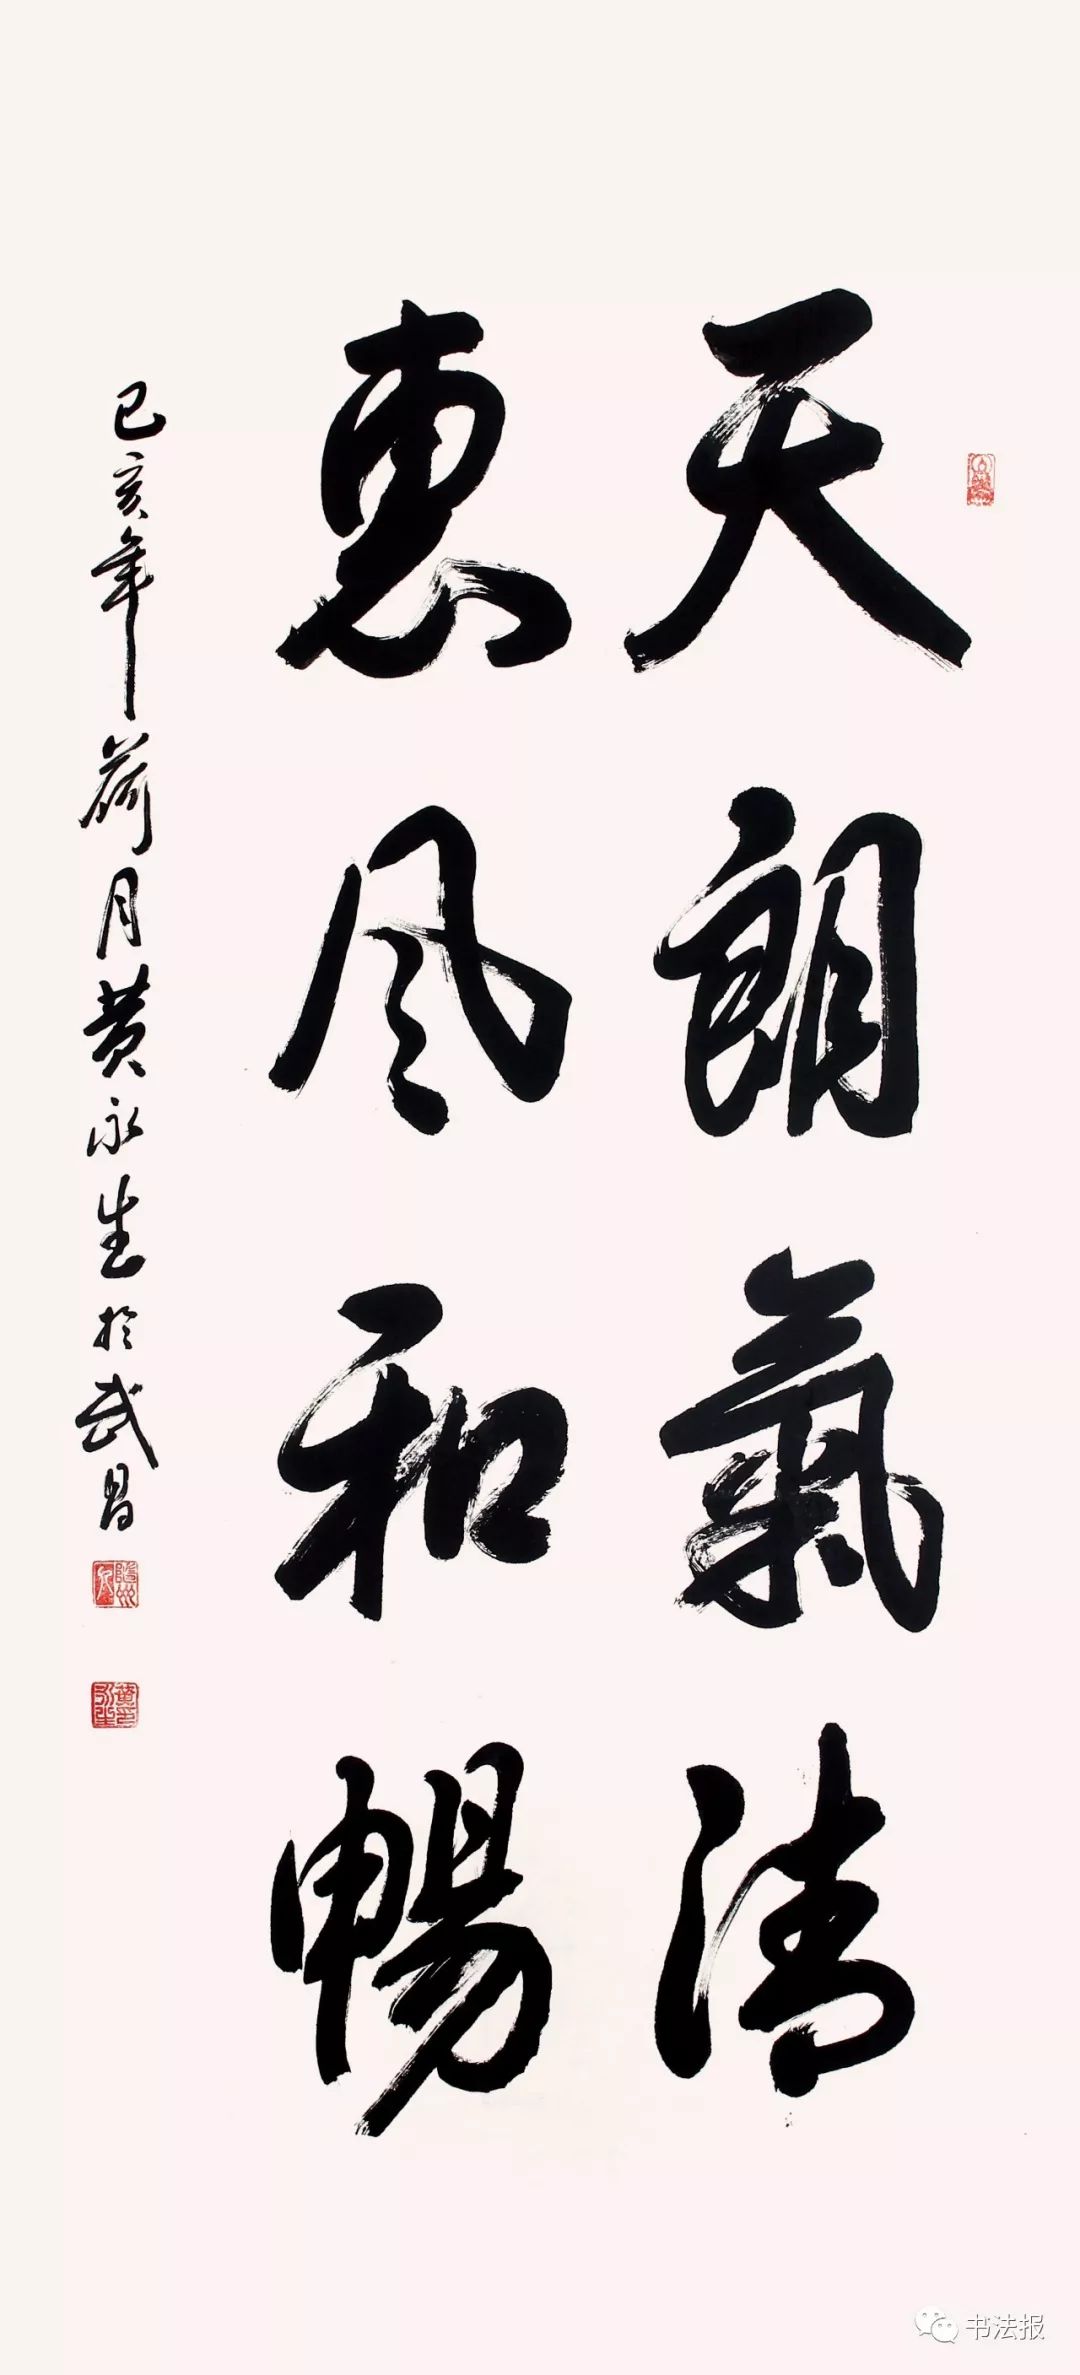 天朗氣清
惠风和暢
己亥年荷月黄永生於武昌
书法报